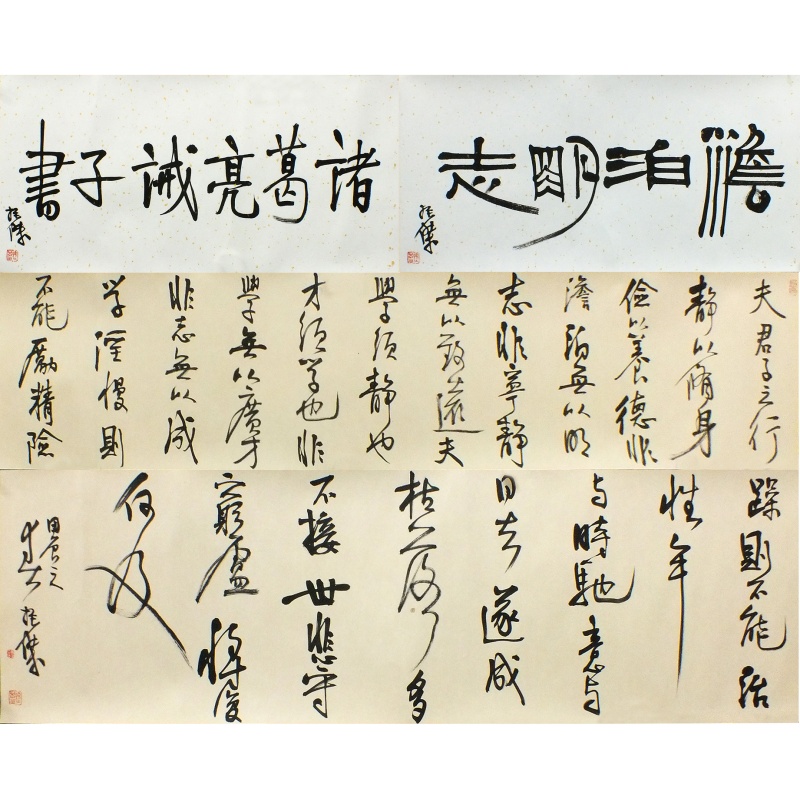 澹泊明志
諸葛亮誡子書
夫君子之行
静以脩身
儉以養德非
澹泊無以明
志非寧静
無以致遠夫
學須静也
才須学也非
學無以廣才
非志無以成
学淫慢則
不能勵精險
躁則不能治
性年
与時馳意与
日去遂成
枯落多
不接世悲守
窮廬將復
何及